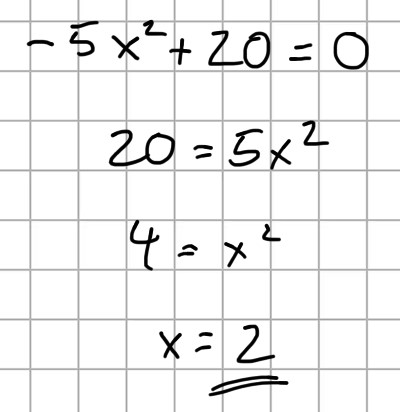 -5x²+20=0
20=5x²
4=x²
x=2